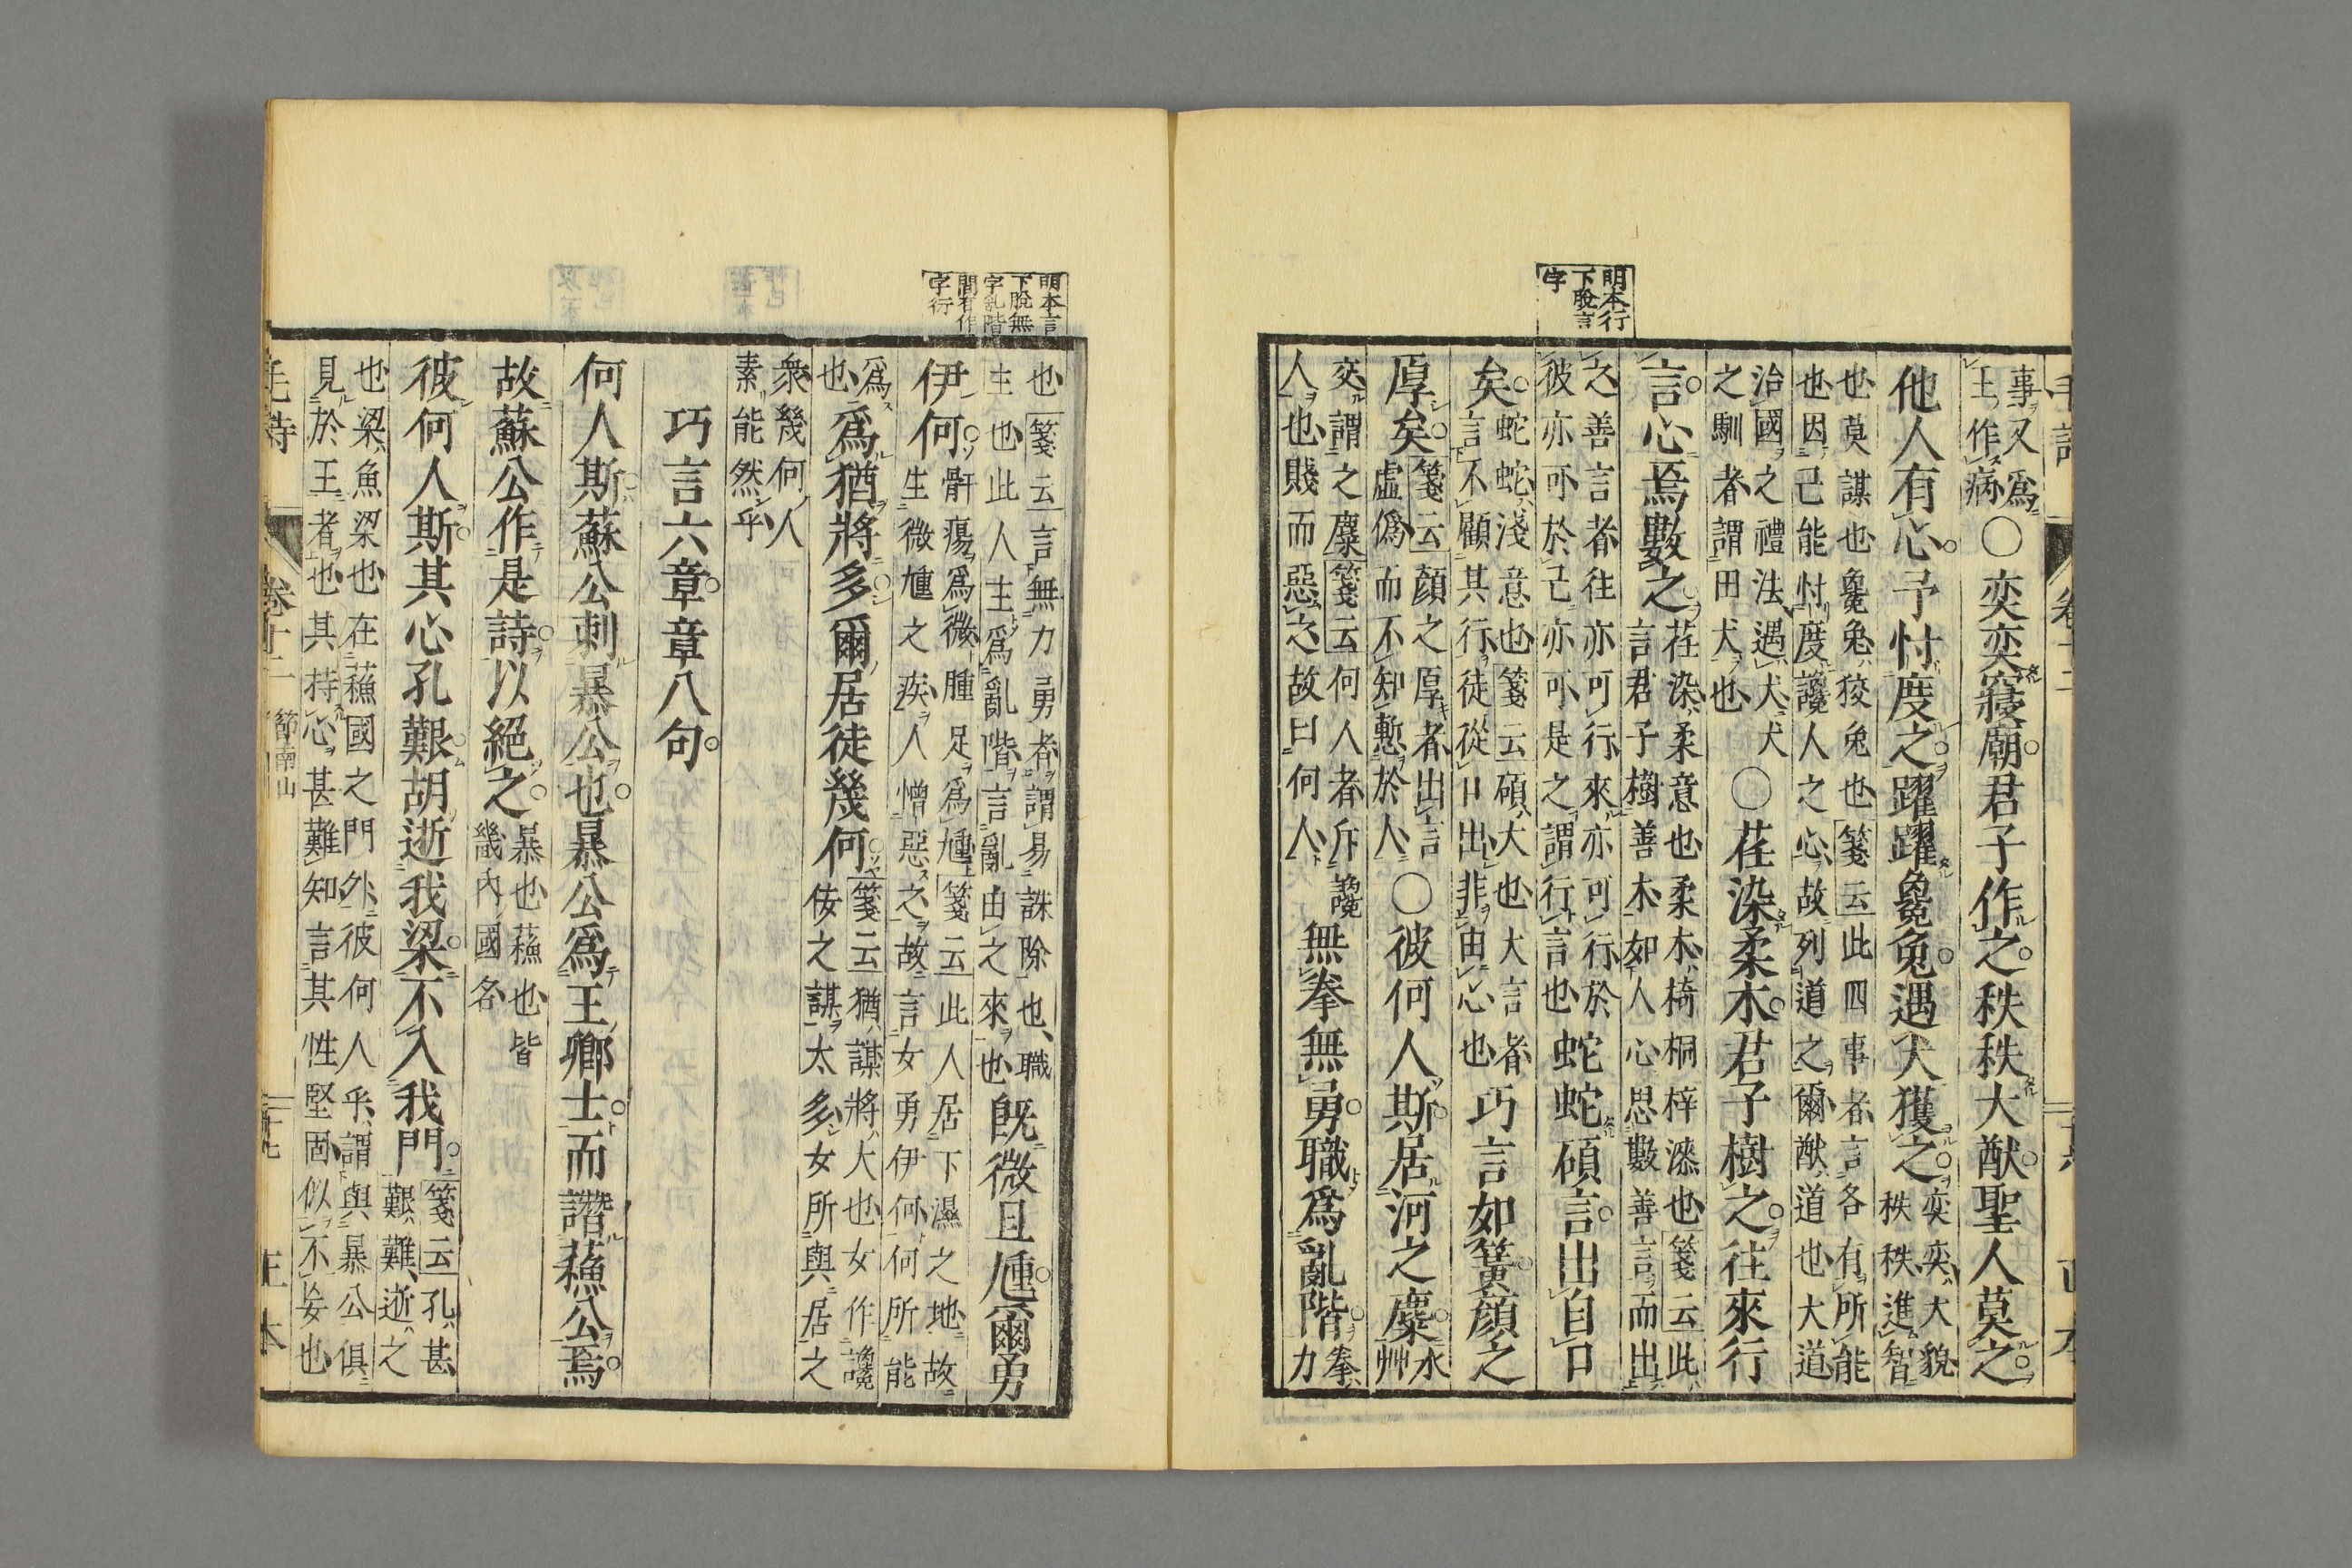 毛詩
卷十二
明本行
下脫言
字
事又爲
上作病
〇奕奕寢廟君子作之秩秩大猷聖人莫之
他人有心予忖度之躍躍毚兔遇犬獲之
奕奕大貌
秩秩進智
也莫謀也毚兔狡兔也箋云此四事者言各有所能
也因己能忖度讒人之心故列道之爾猷道也大道
治國之禮法遇犬犬
之馴者謂田犬也
〇荏染柔木君子樹之往來行
言心焉數之
荏染柔意也柔木椅桐梓漆也箋云此
言君子樹善木如人心思數善言而出
之善言者往亦可行來亦可行於
彼亦可於己亦可是之謂行言也
蛇蛇碩言出自口
矣
蛇蛇淺意也箋云碩大也大言者
言不顧其行徒從口出非由心也
巧言如簧顏之
厚矣
箋云顏之厚者出言
虛僞而不知慙於人
〇彼何人斯居河之麋
水
艸
交謂之麋箋云何人者斥讒
人也賤而惡之故曰何人
無拳無勇職爲亂階
拳
力
明本言
下脫無
字亂階
間有作
字衍
也箋云言無力勇者謂易誅除也職
主也此人主爲亂階言亂由之來也
既微且尰爾勇
伊何
骭瘍爲微腫足爲尰箋云此人居下濕之地故
生微尰之疾人憎惡之故言女勇伊何何所能
爲
也
爲猶將多爾居徒幾何
箋云猶謀將大也女作讒
佞之謀大多女所與居之
衆幾何人
素能然乎
巧言六章章八句
何人斯蘇公刺暴公也暴公爲王卿士而譖蘇公焉
故蘇公作是詩以絕之
暴也蘇也皆
畿內國名
彼何人斯其心孔艱胡逝我梁不入我門
箋云孔甚
艱難逝之
也梁魚梁也在蘇國之門外彼何人乎謂與暴公俱
見於王者也其持心甚難知言其性堅固似不妄也
毛詩
卷十二
節南山